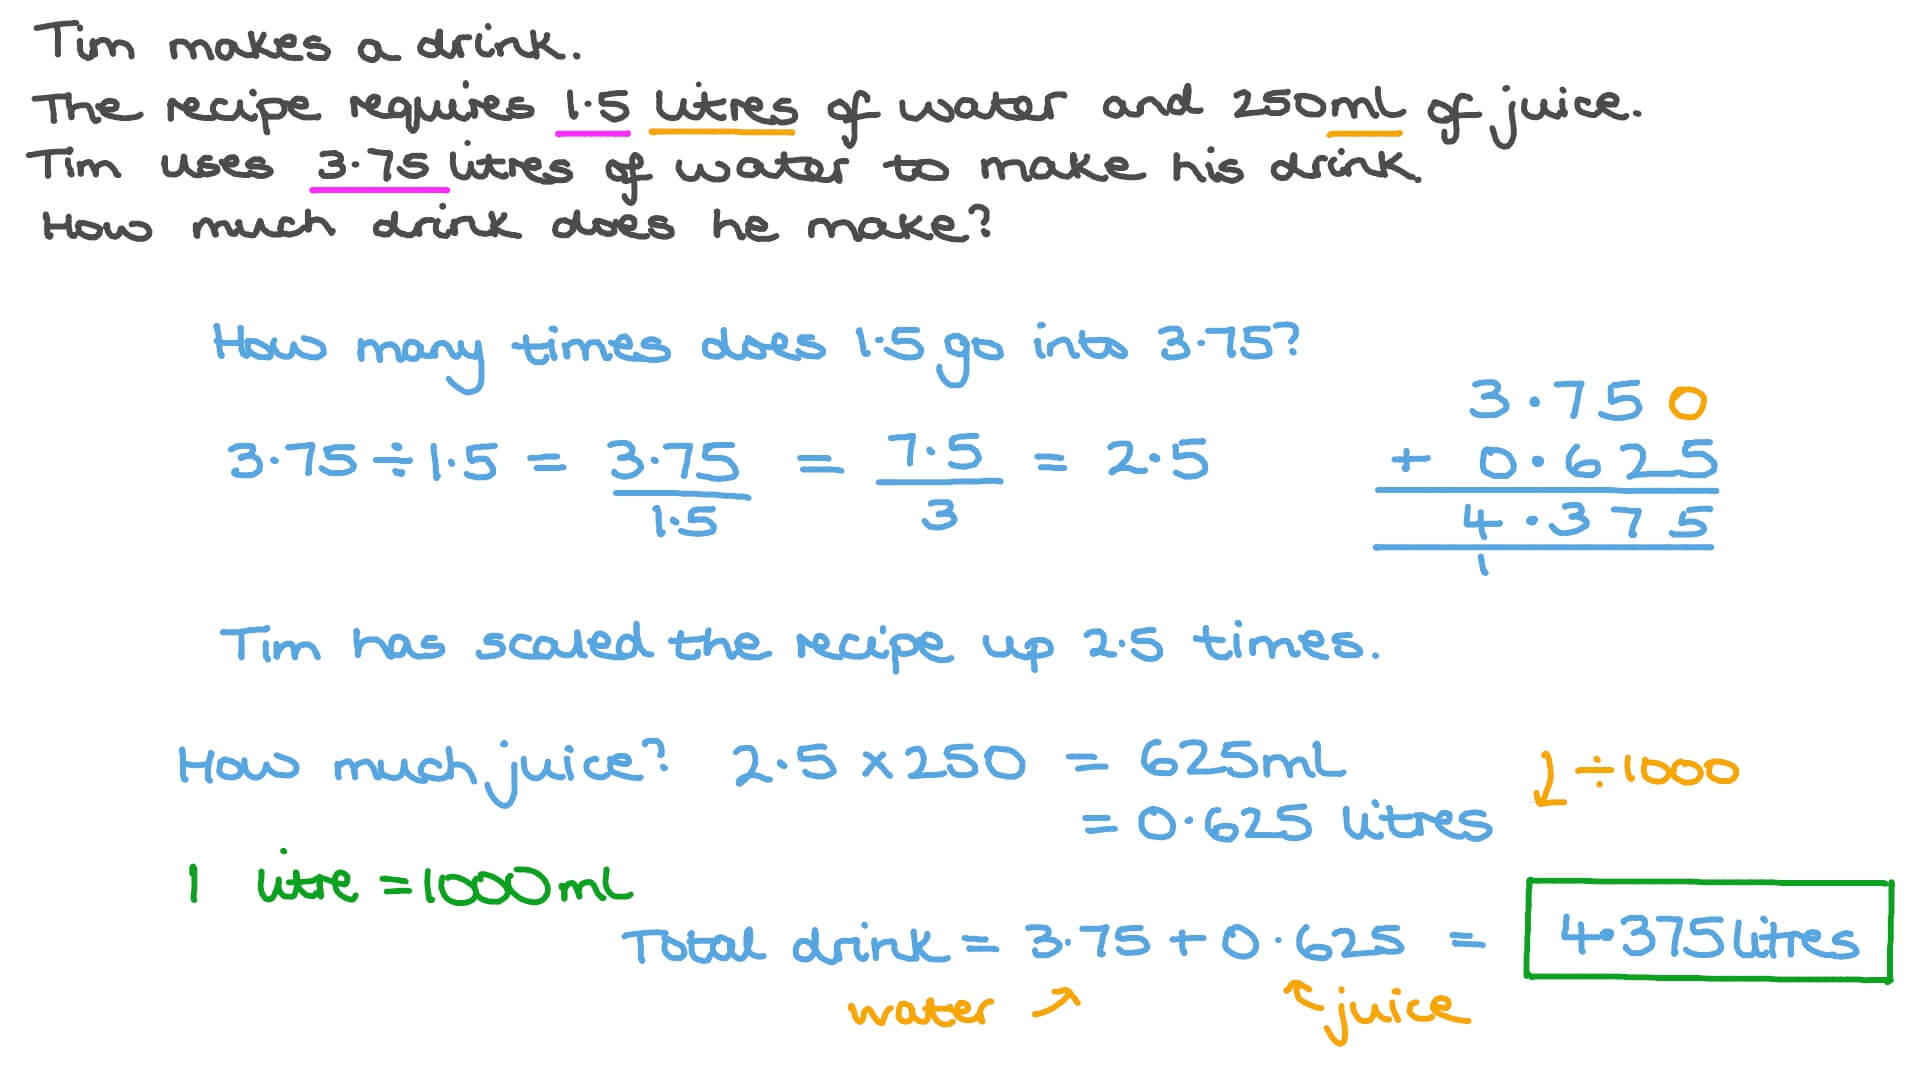 Tim makes a drink.
The recipe requires 1·5 litres of water and 250ml of juice.
Tim uses 3·75 litres of water to make his drink.
How much drink does he make?
How many times does 1·5 go into 3·75?
3·75 ÷ 1·5 = 3·75/1·5 = 7·5/3 = 2·5
3·750
+ 0·625
4·375
1
Tim has scaled the recipe up 2·5 times.
How much juice? 2·5 × 250 = 625ml
÷1000
= 0·625 litres
1 litre = 1000ml
Total drink = 3·75 + 0·625 = 4·375 litres
water juice